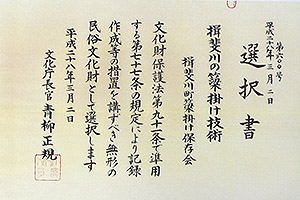 第六〇〇号
平成二八年三月二日
選択書
揖斐川の簗掛け技術
揖斐川町簗掛け保存会
文化財保護法第九一条で準用
する第七七条の規定により記録
作成等の措置を講ずべき無形の
民俗文化財として選択します
平成二八年三月二日
文化庁長官 青柳正規